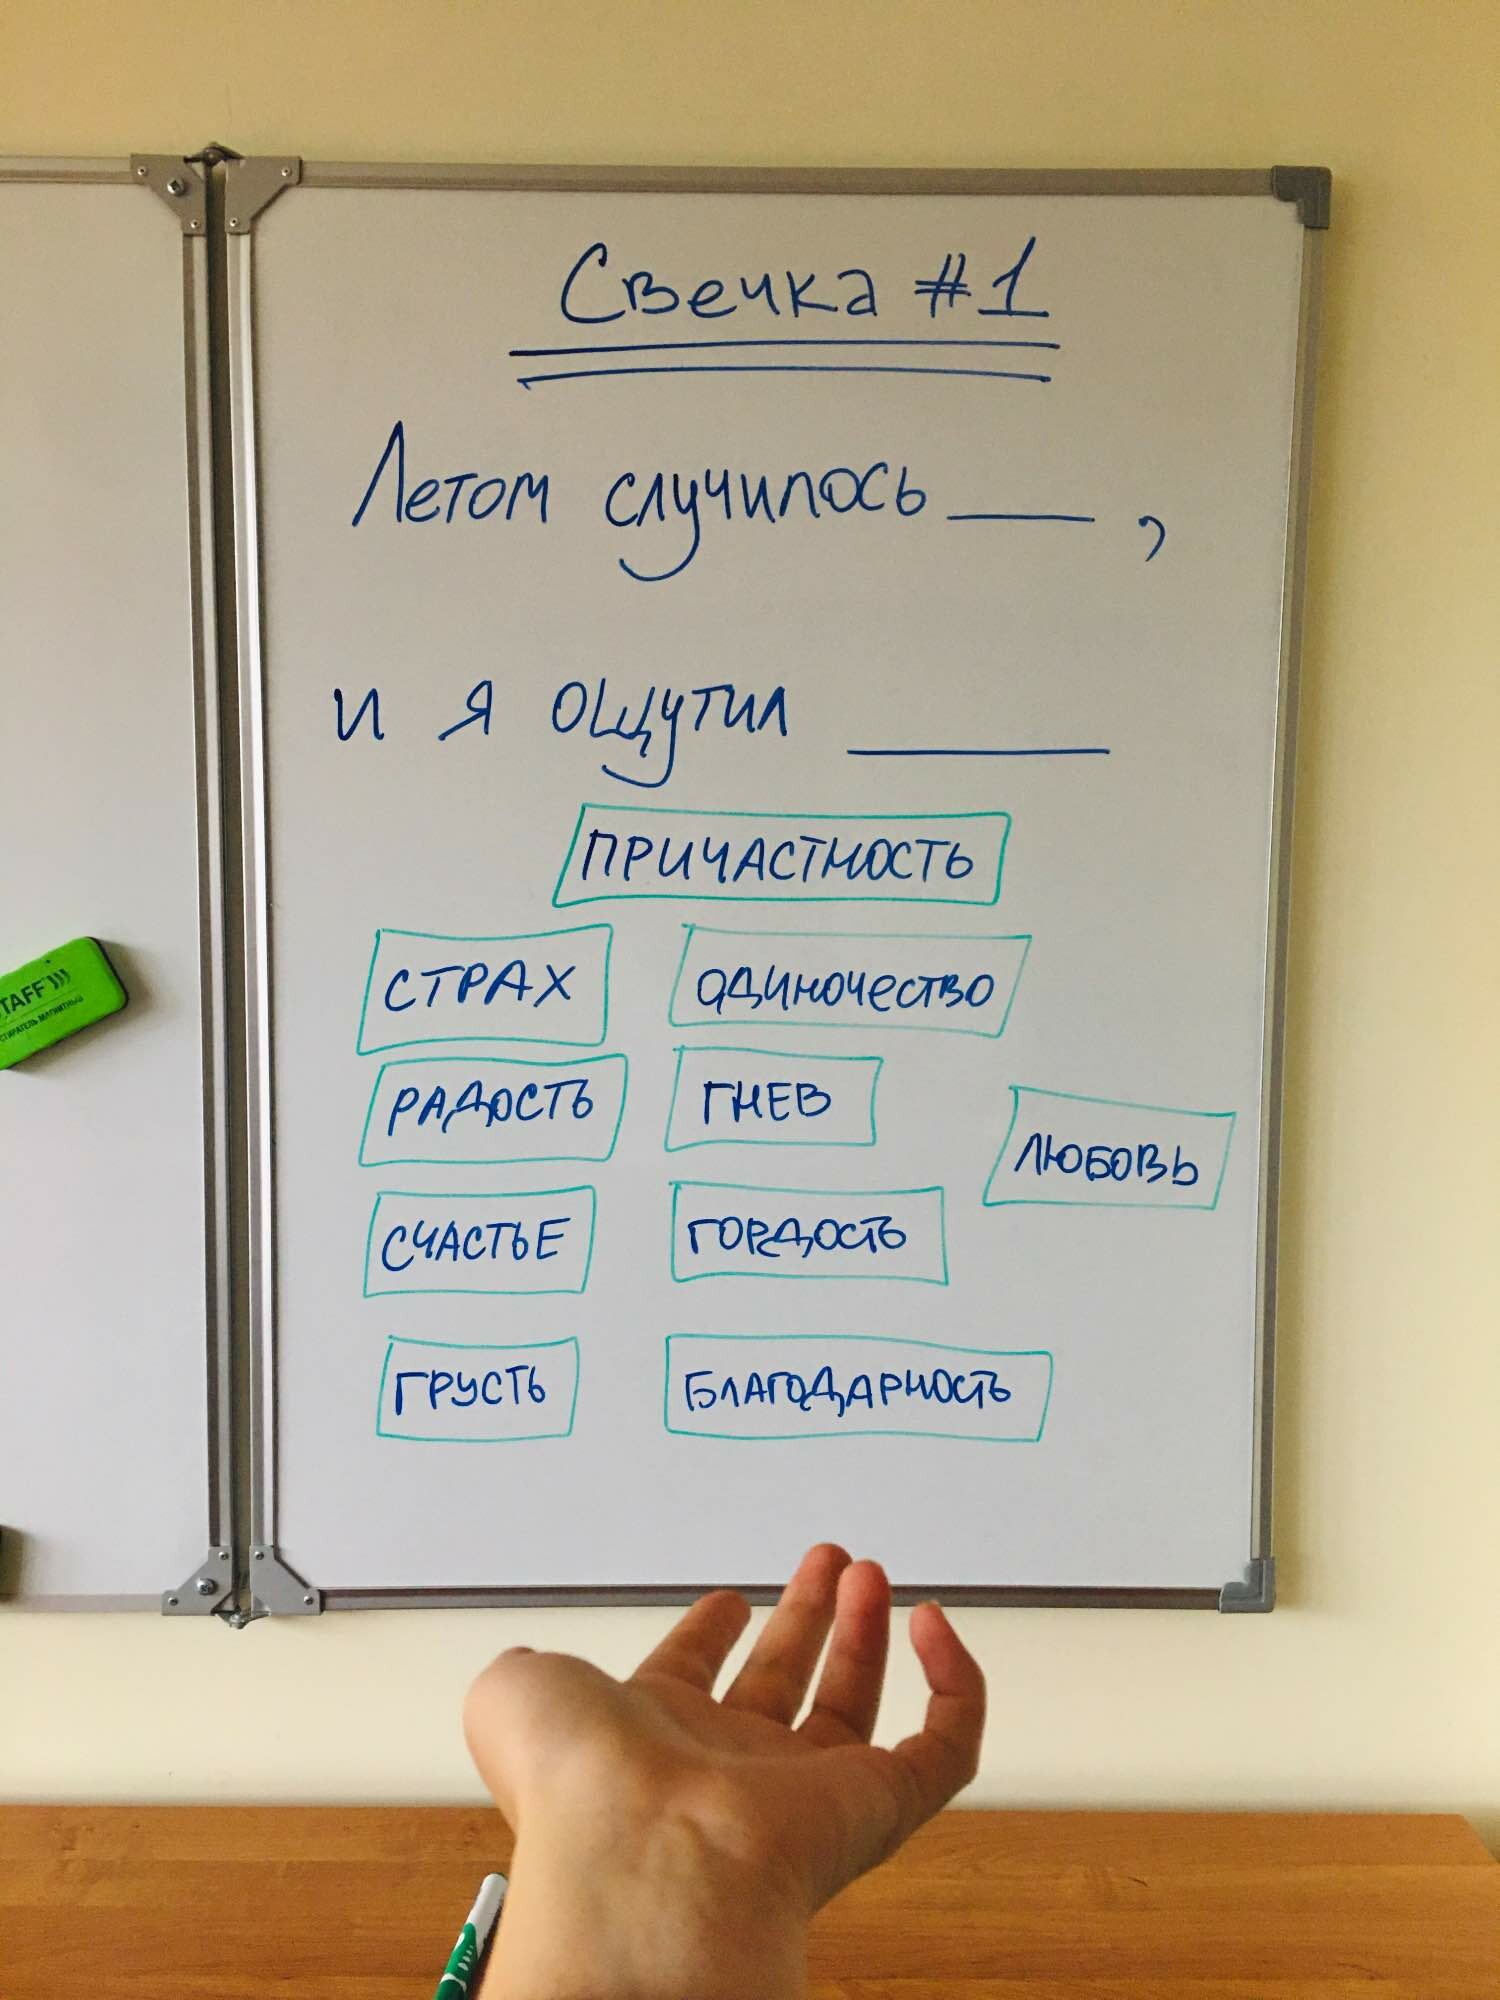 Свечка #1
Летом случилось ___ ,
и я ощутил ___
ПРИЧАСТНОСТЬ
СТРАХ
ОДИНОЧЕСТВО
РАДОСТЬ
ГНЕВ
ЛЮБОВЬ
СЧАСТЬЕ
ГОРДОСТЬ
ГРУСТЬ
БЛАГОДАРНОСТЬ
TAFF
СТИРАТЕЛЬ МАГНИТНЫЙ